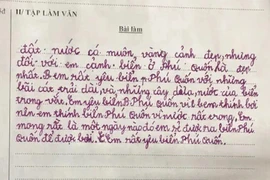 II/ TẬP LÀM VĂN
Bài làm
đất nước có muôn vàng cảnh đẹp, nhưng
đối với em cảnh biển ở Phú Quốc là đẹp
nhất. Em rất yêu biển Phú Quốc với những
bãi cát trải dài, và những cây dừa, nước của biển
trong vắt. Em yêu biển Phú Quốc vì
nên em thích biển Phú Quốc vì nước rất trong. Em
mong rằng là một ngày nào đó em sẽ được ra biển Phú
Quốc để được bơi. Em rất yêu biển Phú Quốc.